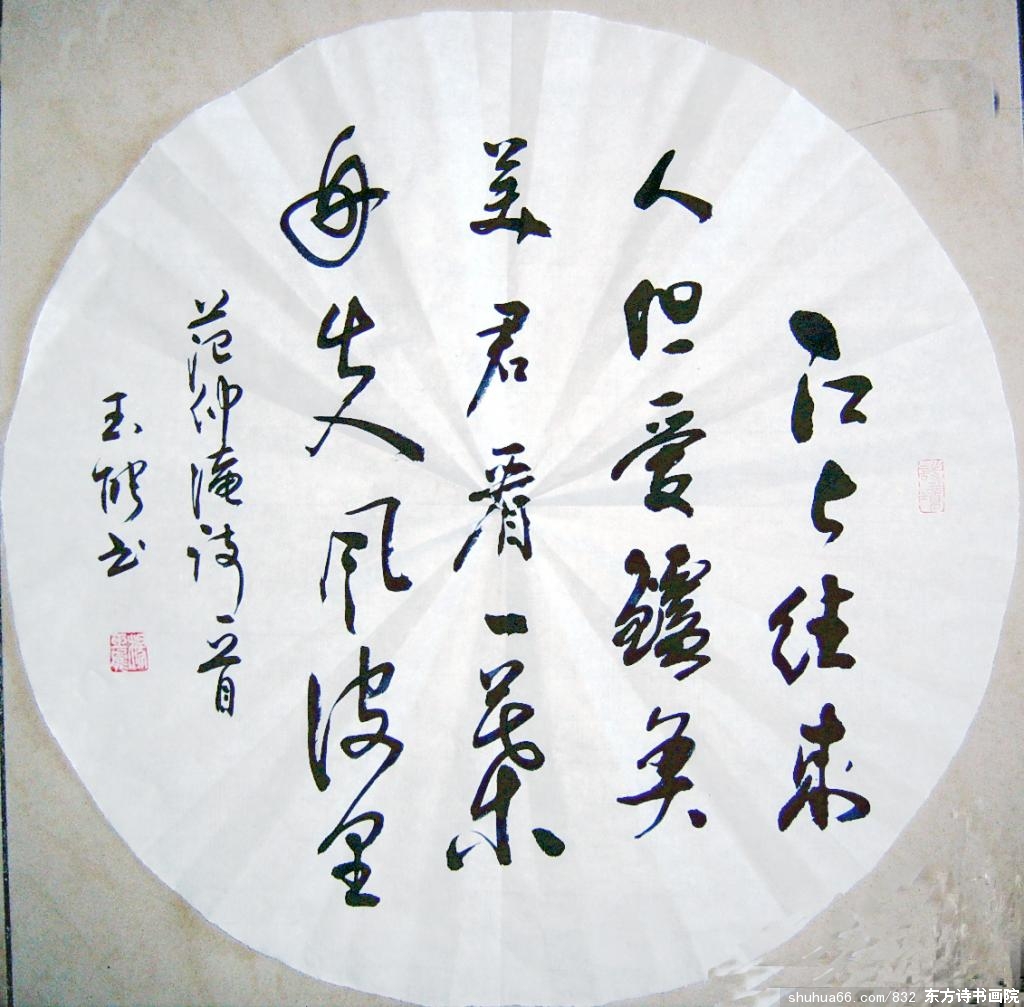 江上往来
人但爱鱸鱼
美君看一葉
舟出入风波里
范仲淹诗一首
玉书
shuhua66.com/832 东方诗书画院